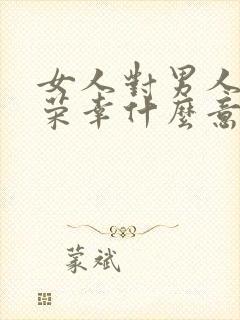 女人對男人
榮幸什麼意
蒙斌